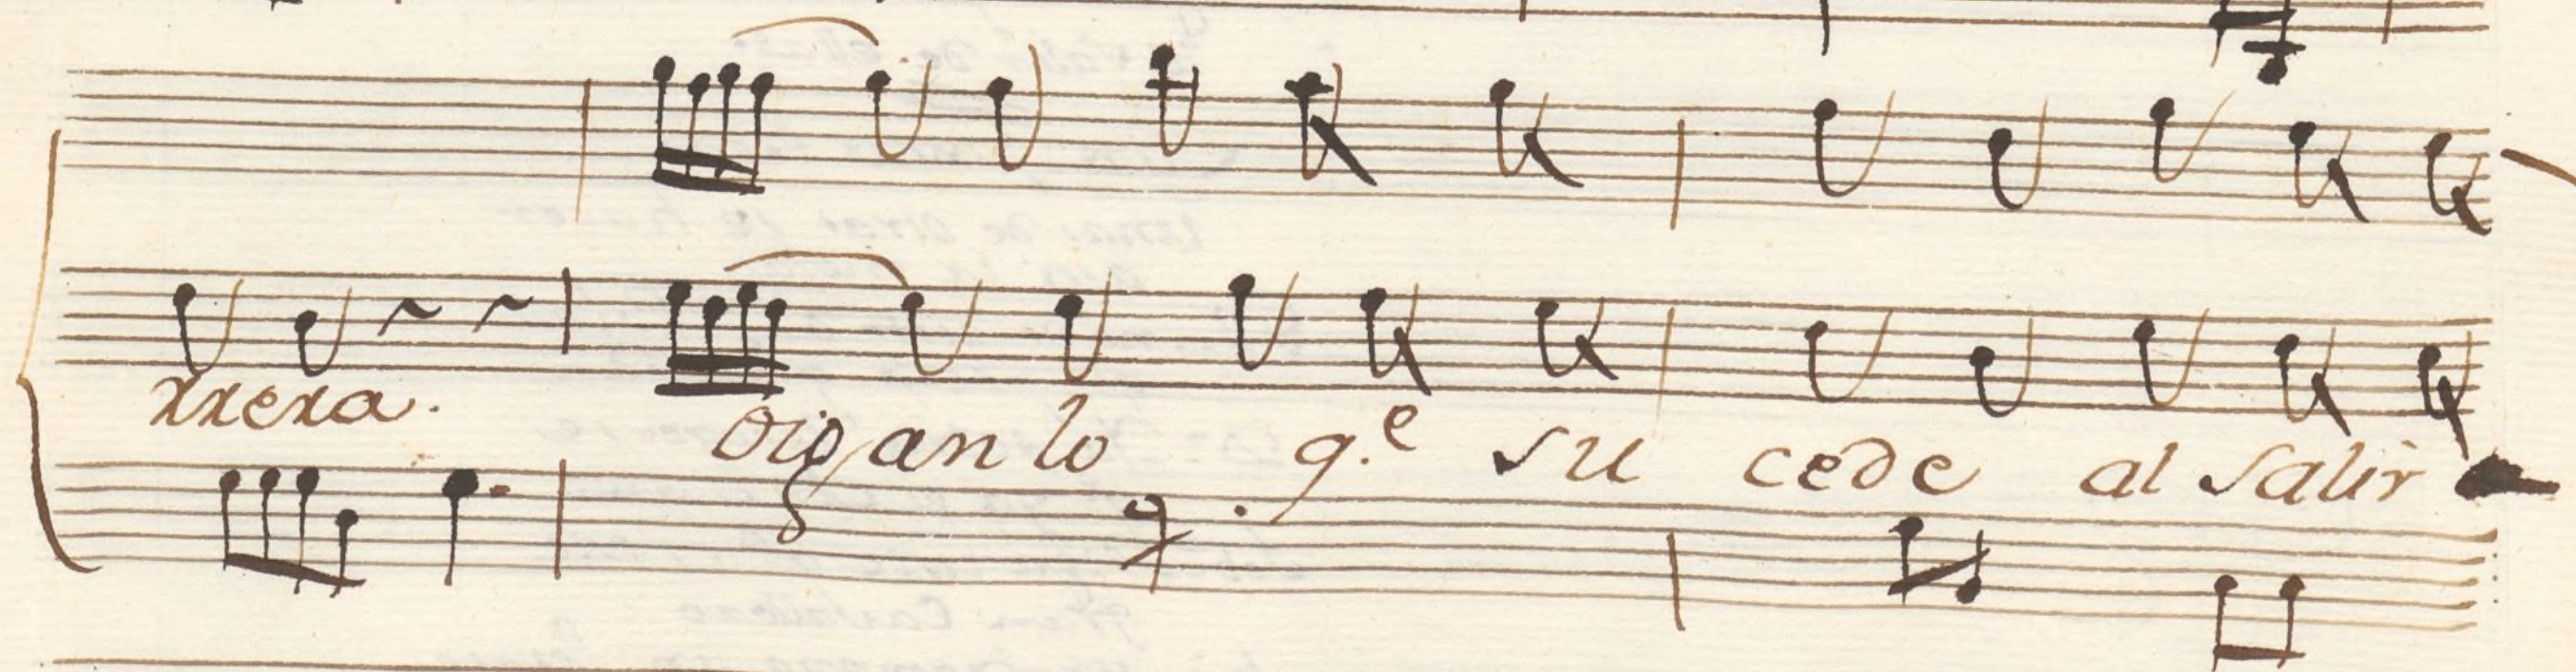 rrera. Oigan lo q.e su cede al salir